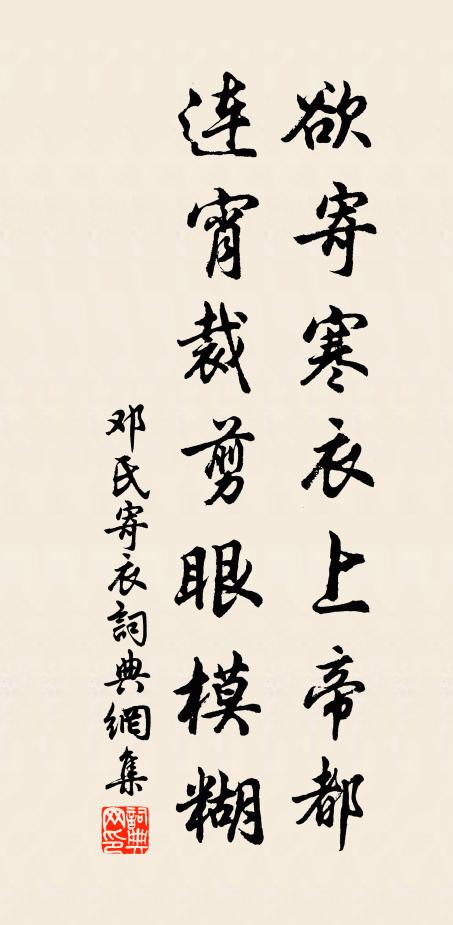 欲寄寒衣上帝都
连宵裁剪眼模糊
邓氏寄衣詞典網集
詞典網印